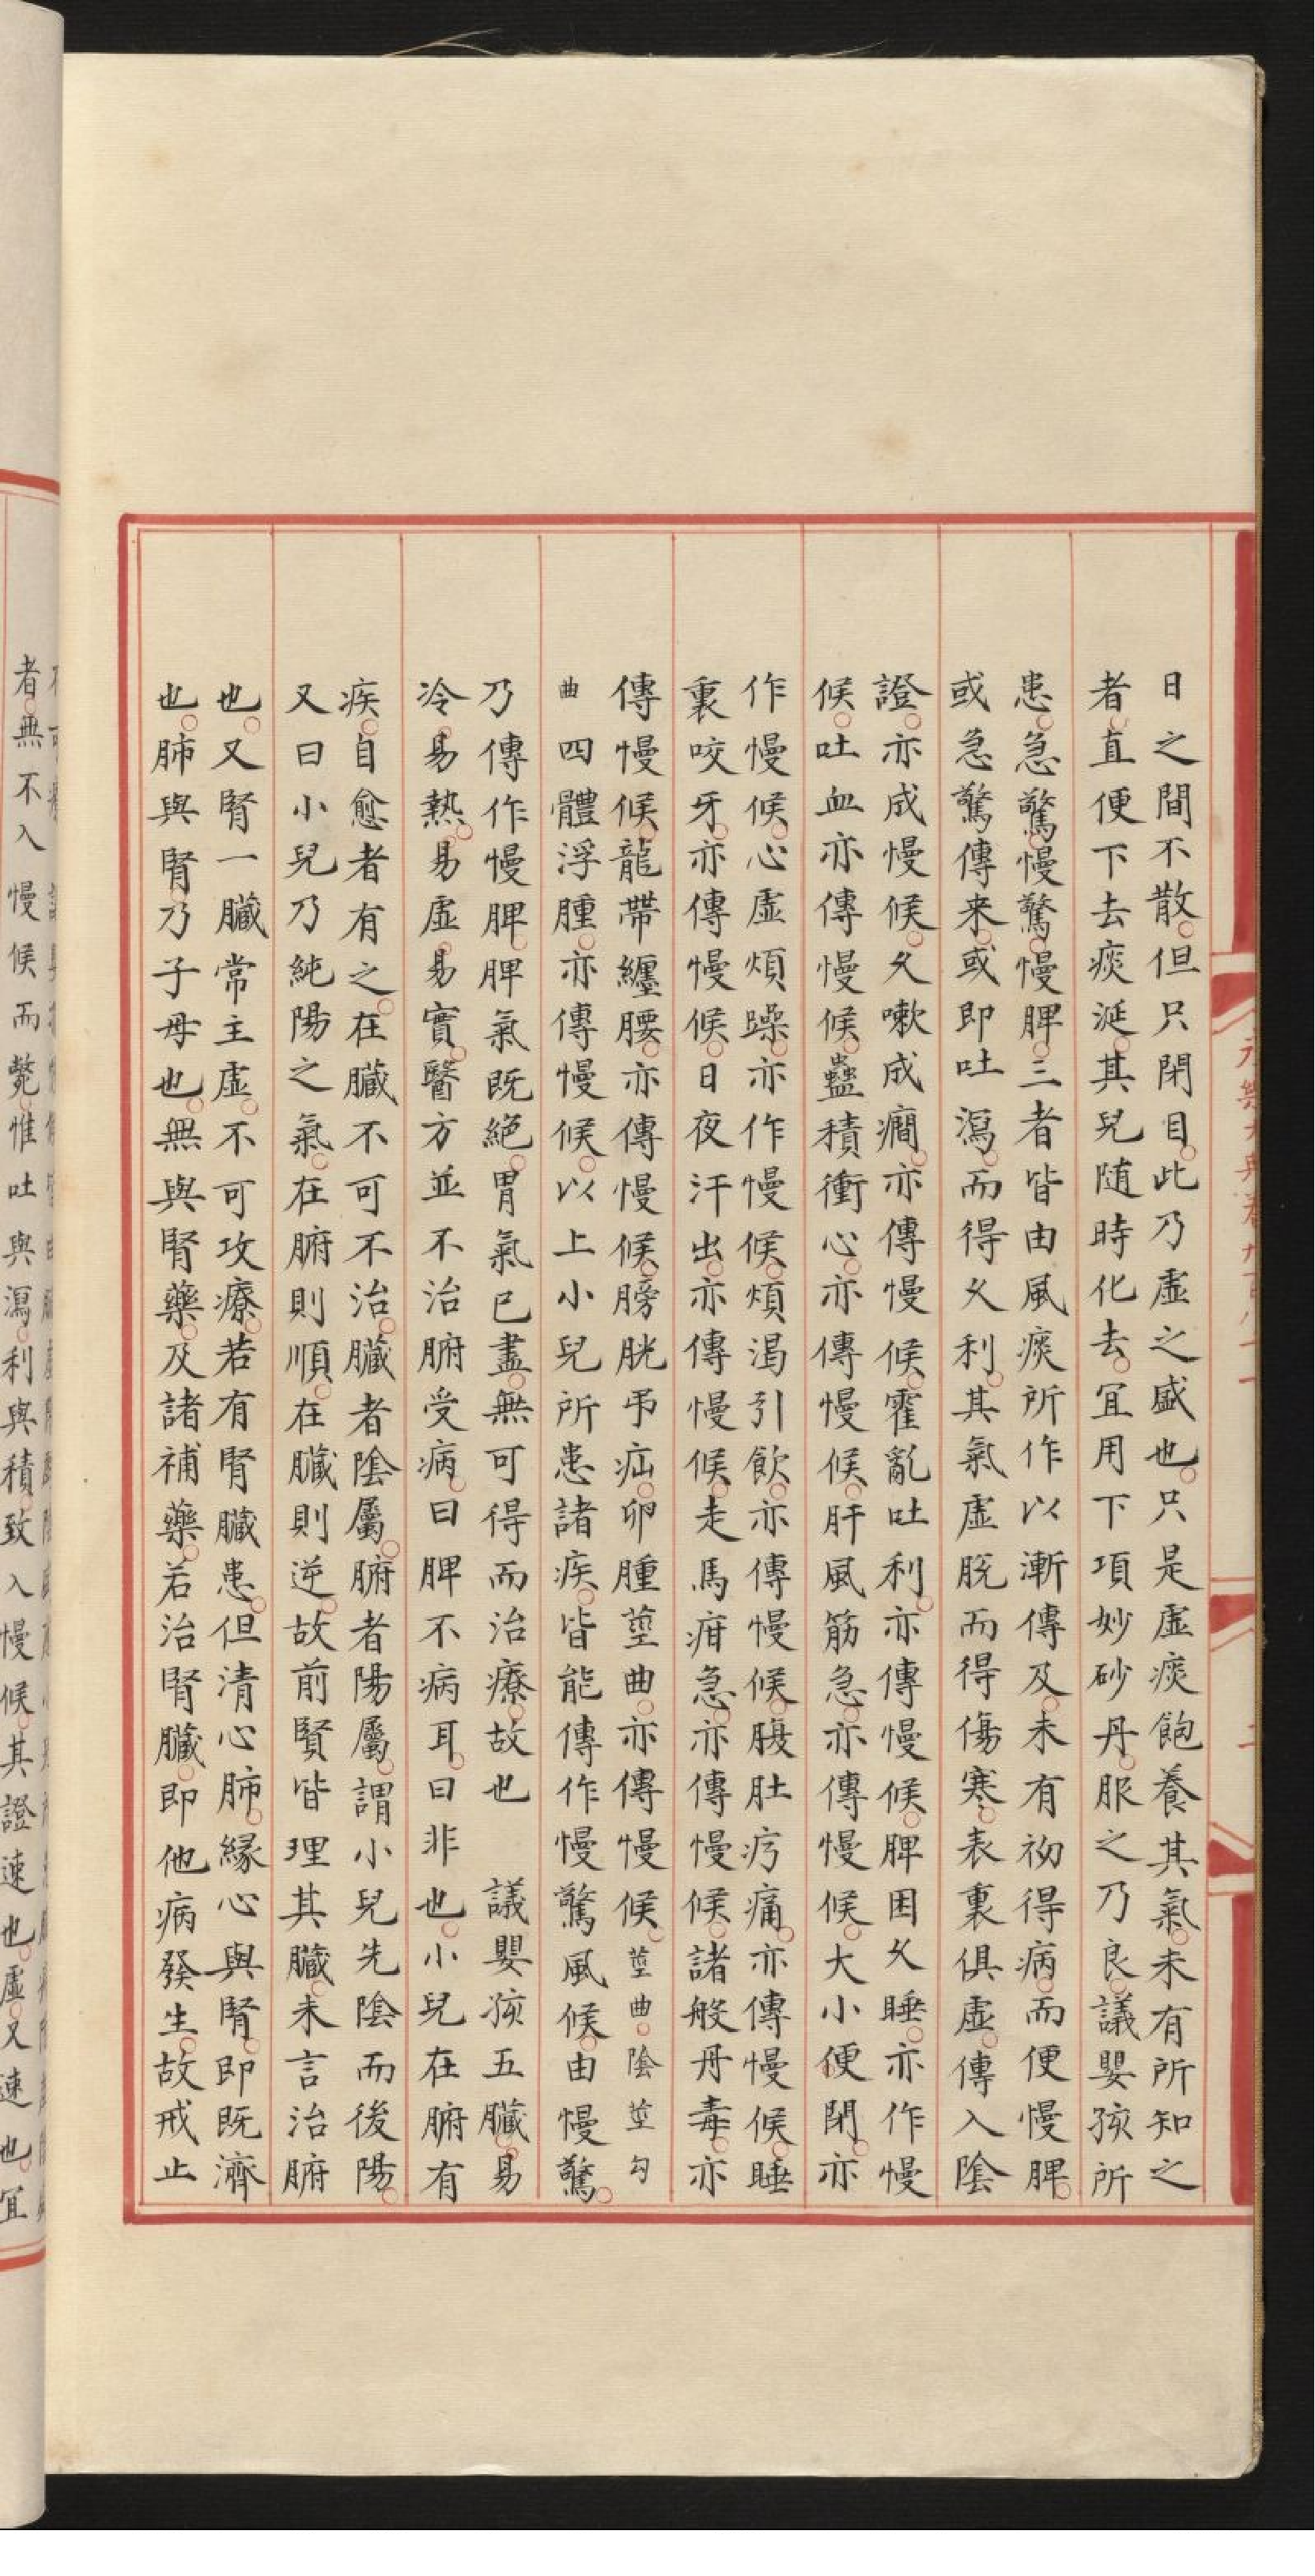 日之間不散但只閉目此乃虛之盛也只是虛痰飽養其氣未有所知之
者直便下去痰涎其兒随時化去宜用下項妙砂丹服之乃良議嬰孩所
患急驚慢驚慢脾三者皆由風痰所作以漸傳及未有初得病而便慢脾
或急驚傳来或即吐瀉而得久利其氣虛脫而得傷寒表裏俱虛傳入陰
證亦成慢候久嗽成癇亦傳慢候霍亂吐利亦傳慢候脾困久睡亦作慢
候吐血亦傳慢候蠱積衝心亦傳慢候肝風筋急亦傳慢候大小便閉亦
作慢候心虛煩躁亦作慢候煩渴引飲亦傳慢候腹肚疞痛亦傳慢候睡
裏咬牙亦傳慢候日夜汗出亦傳慢候走馬疳急亦傳慢候諸般丹毒亦
傳慢候龍帶纏腰亦傳慢候膀胱弔疝卵腫莖曲亦傳慢候莖曲陰莖勾
曲四體浮腫亦傳慢候以上小兒所患諸疾皆能傳作慢驚風候由慢驚
乃傳作慢脾脾氣既絕胃氣已盡無可得而治療故也 議嬰孩五臟易
冷易熱易虛易實醫方並不治腑受病曰脾不病耳曰非也小兒在腑有
疾自愈者有之在臟不可不治臟者陰屬腑者陽屬謂小兒先陰而後陽
又曰小兒乃純陽之氣在腑則順在臟則逆故前賢皆理其臟未言治腑
也又腎一臟常主虛不可攻療若有腎臟患但清心肺緣心與腎即既濟
也肺與腎乃子母也無與腎藥及諸補藥若治腎臟即他病發生故戒止
者無不入慢候而斃惟吐與瀉利與積致入慢候其證速也虛又速也宜